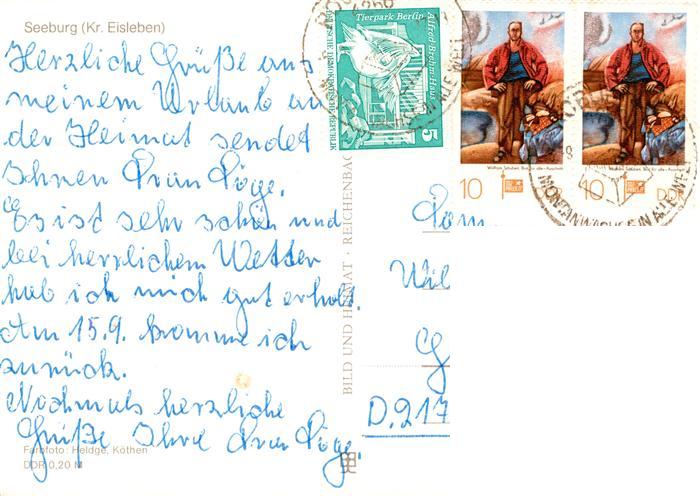 Seeburg (Kr. Eisleben)
Herzliche Grüße aus
meinem Urlaub in
der Heimat sendet
Ihnen Frau Pöge.
Es ist sehr schön und
bei herrlichem Wetter
hab ich mich gut erholt.
Am 15.9. komme ich
zurück.
Nochmals herzliche
Grüße Ihre Frau Pöge.
Farbfoto: Heldge, Köthen
DDR 0,20 M
BILD UND HEIMAT · REICHENBAC
Tierpark Berlin
Alfred-Brehm-Haus
DEUTSCHE DEMOKRATISCHE REPUBLIK
5
10
10 DDR
Fam
Wil
G
D.217